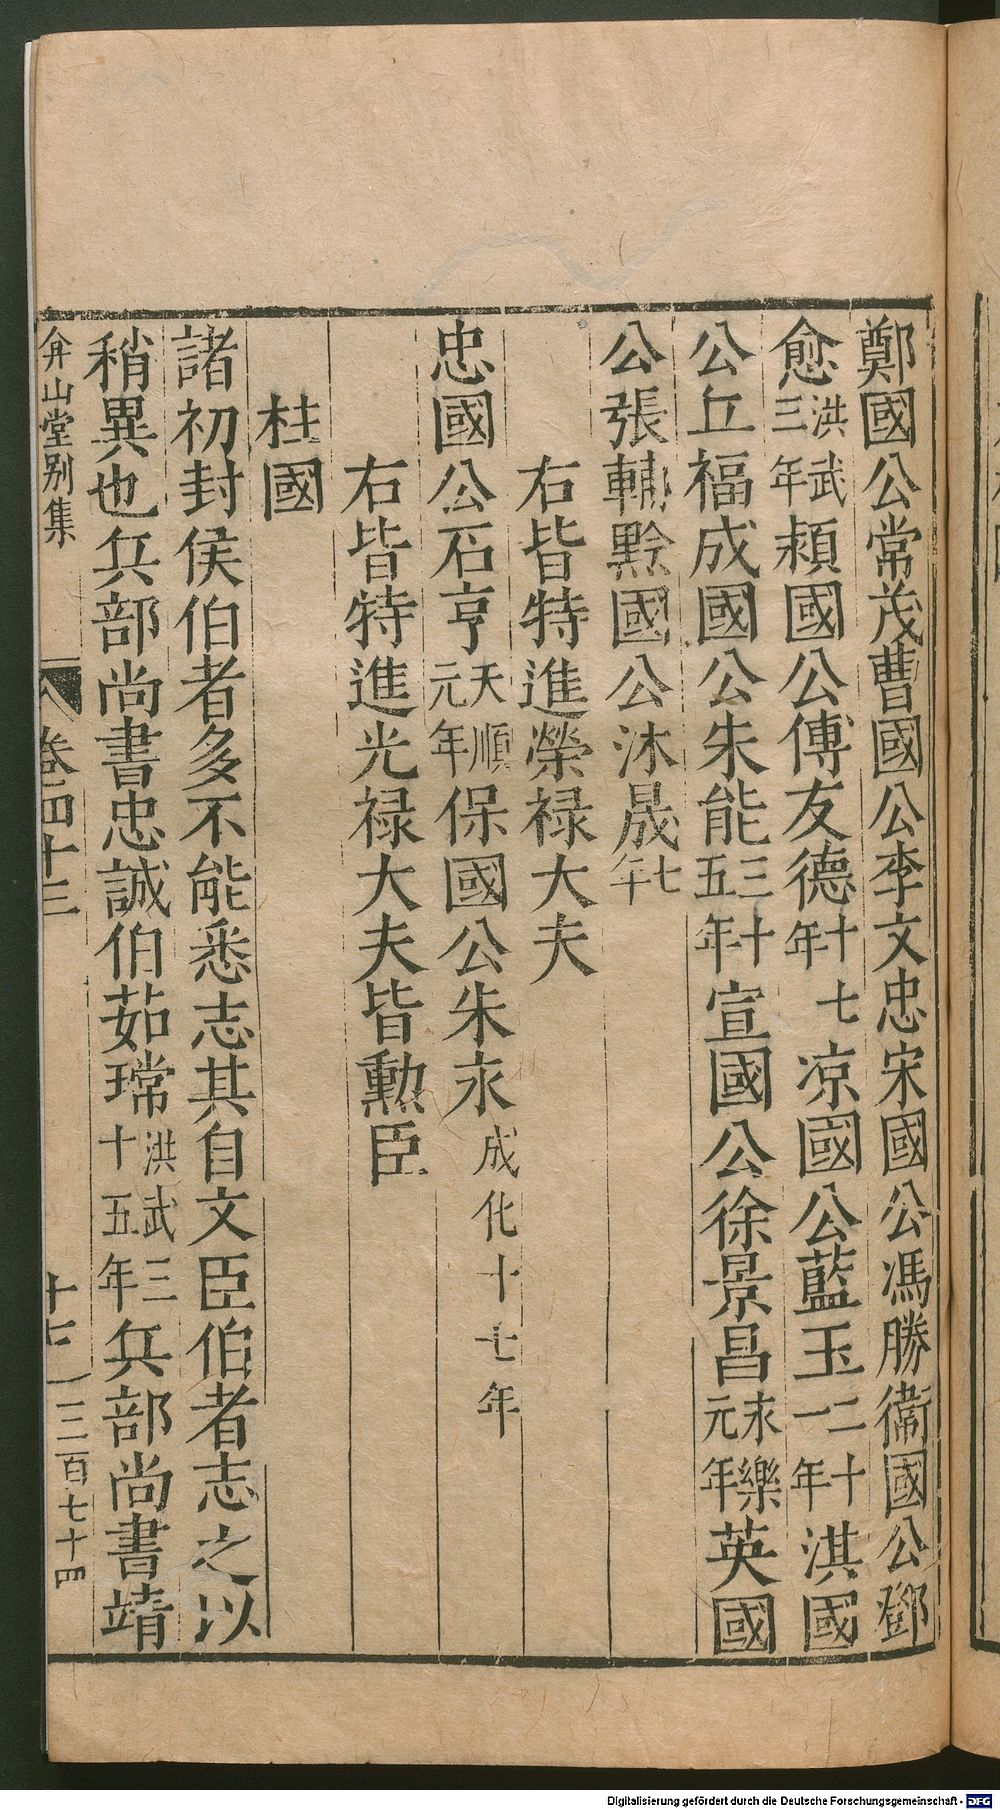 鄭國公常茂曹國公李文忠宋國公馮勝衞國公鄧
愈洪武三年潁國公傅友德十七年凉國公藍玉二十一年淇國
公丘福成國公朱能三十五年宣國公徐景昌永樂元年英國
公張輔黔國公沐晟七年
右皆特進榮禄大夫
忠國公石亨天順元年保國公朱永成化十七年
右皆特進光禄大夫皆勳臣
柱國
諸初封侯伯者多不能悉志其自文臣伯者志之以
稍異也兵部尚書忠誠伯茹瑺洪武三十五年兵部尚書靖
弇山堂别集 卷四十三 十七 三百七十四
Digitalisierung gefördert durch die Deutsche Forschungsgemeinschaft - DFG